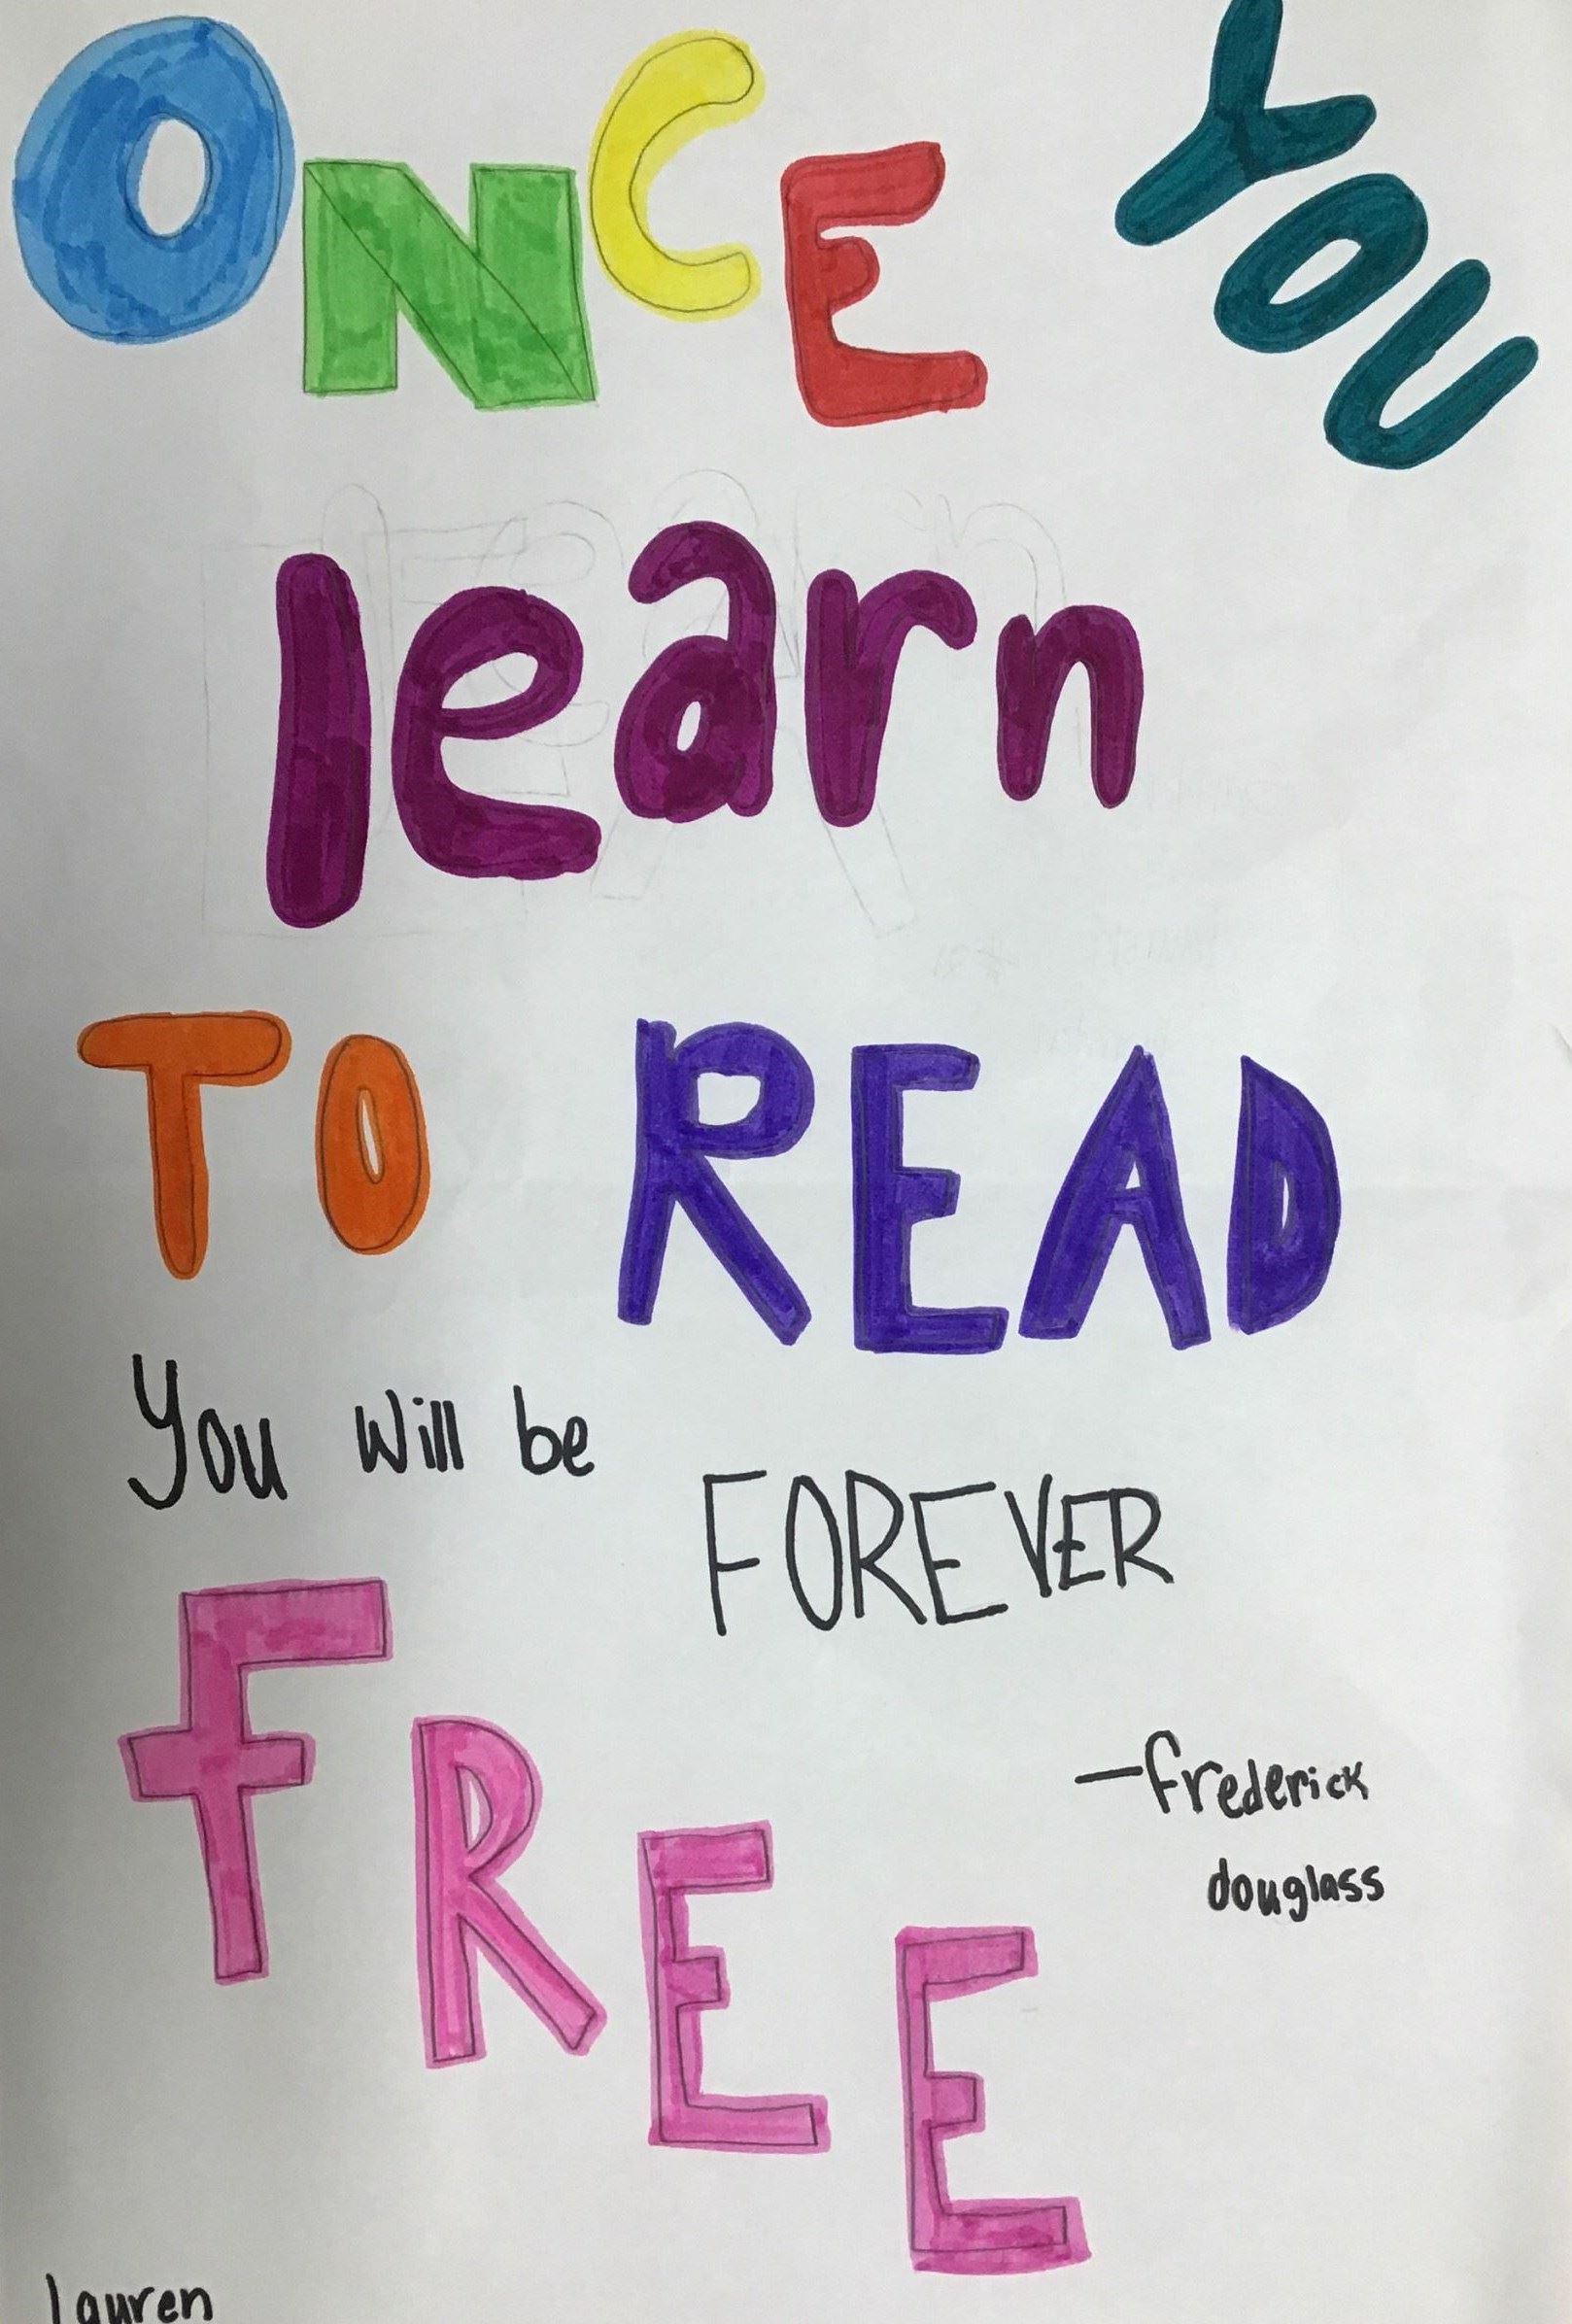 ONCE YOU
learn
TO READ
You will be
FOREVER
FREE
—frederick
douglass
lauren